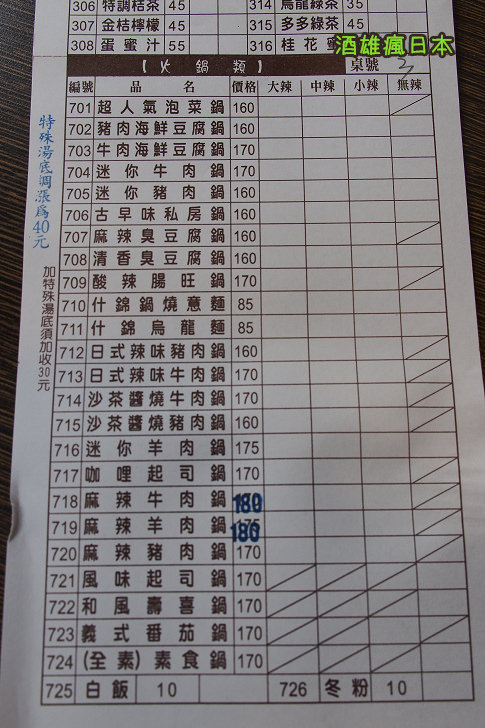 306 特調桔茶 45 314 烏龍綠茶 35
307 金桔檸檬 45 315 多多綠茶 45
308 蛋蜜汁 55 316 桂花蜜
酒雄瘋日本
(火鍋類) 桌號
編號 品名 價格 大辣 中辣 小辣 無辣
701 超人氣泡菜鍋 160
702 豬肉海鮮豆腐鍋 160
703 牛肉海鮮豆腐鍋 170
704 迷你牛肉鍋 170
705 迷你豬肉鍋 160
706 古早味私房鍋 160
707 麻辣臭豆腐鍋 160
708 清香臭豆腐鍋 160
709 酸辣腸旺鍋 170
710 什錦鍋燒意麵 85
711 什錦烏龍麵 85
712 日式辣味豬肉鍋 160
713 日式辣味牛肉鍋 170
714 沙茶醬燒牛肉鍋 170
715 沙茶醬燒豬肉鍋 160
716 迷你羊肉鍋 175
717 咖哩起司鍋 170
718 麻辣牛肉鍋 180
719 麻辣羊肉鍋 180
720 麻辣豬肉鍋 170
721 風味起司鍋 170
722 和風壽喜鍋 170
723 義式番茄鍋 170
724 (全素)素食鍋 170
725 白飯 10 726 冬粉 10
特殊湯底調漲為40元
加特殊湯底須加收30元